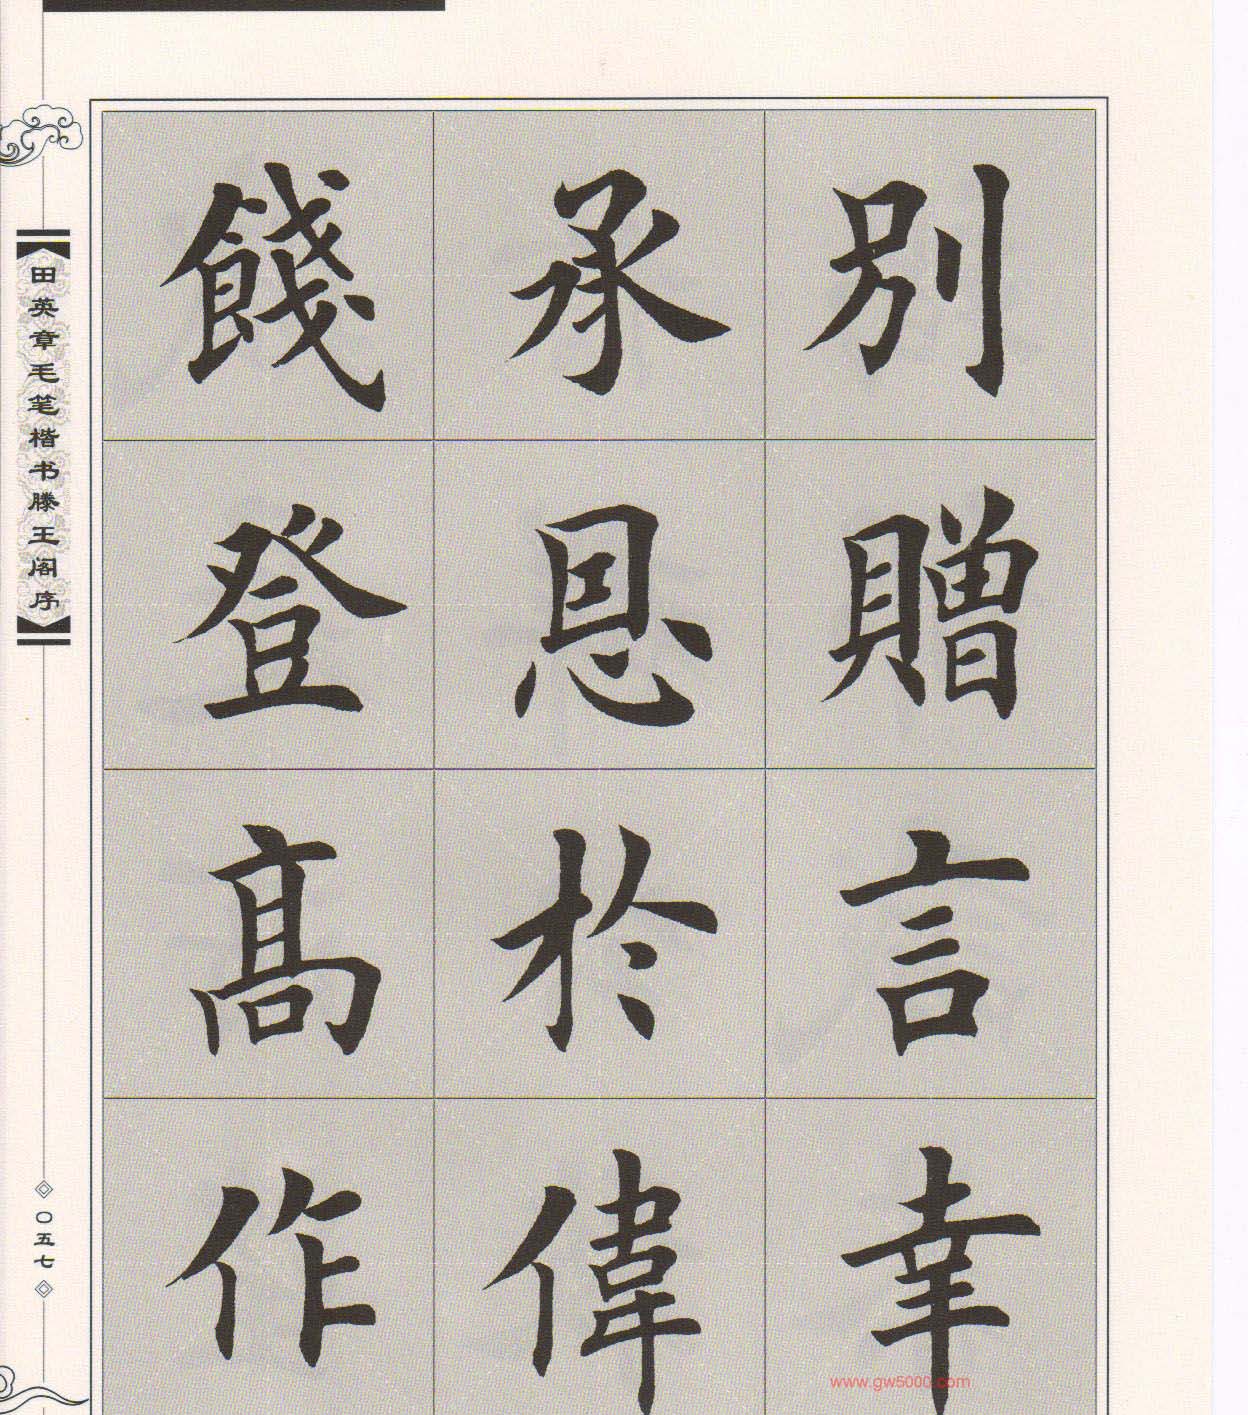 別贈言幸
承恩於偉
餞登高作
田英章毛笔楷书滕王阁序
〇五七
www.gw5000.com